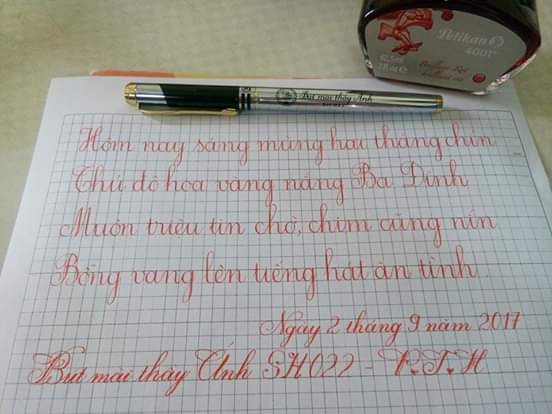 Pelikan
4001
62,5ml
Brilliant Red
Bút mài thầy Ánh
Hôm nay sáng mùng hai tháng chín
Thủ đô hoa vàng nắng Ba Đình
Muôn triệu tin chờ, chim cũng nín
Bỗng vang lên tiếng hát ân tình
Ngày 2 tháng 9 năm 2017
Bút mài thầy Ánh SH022 - P.T.H